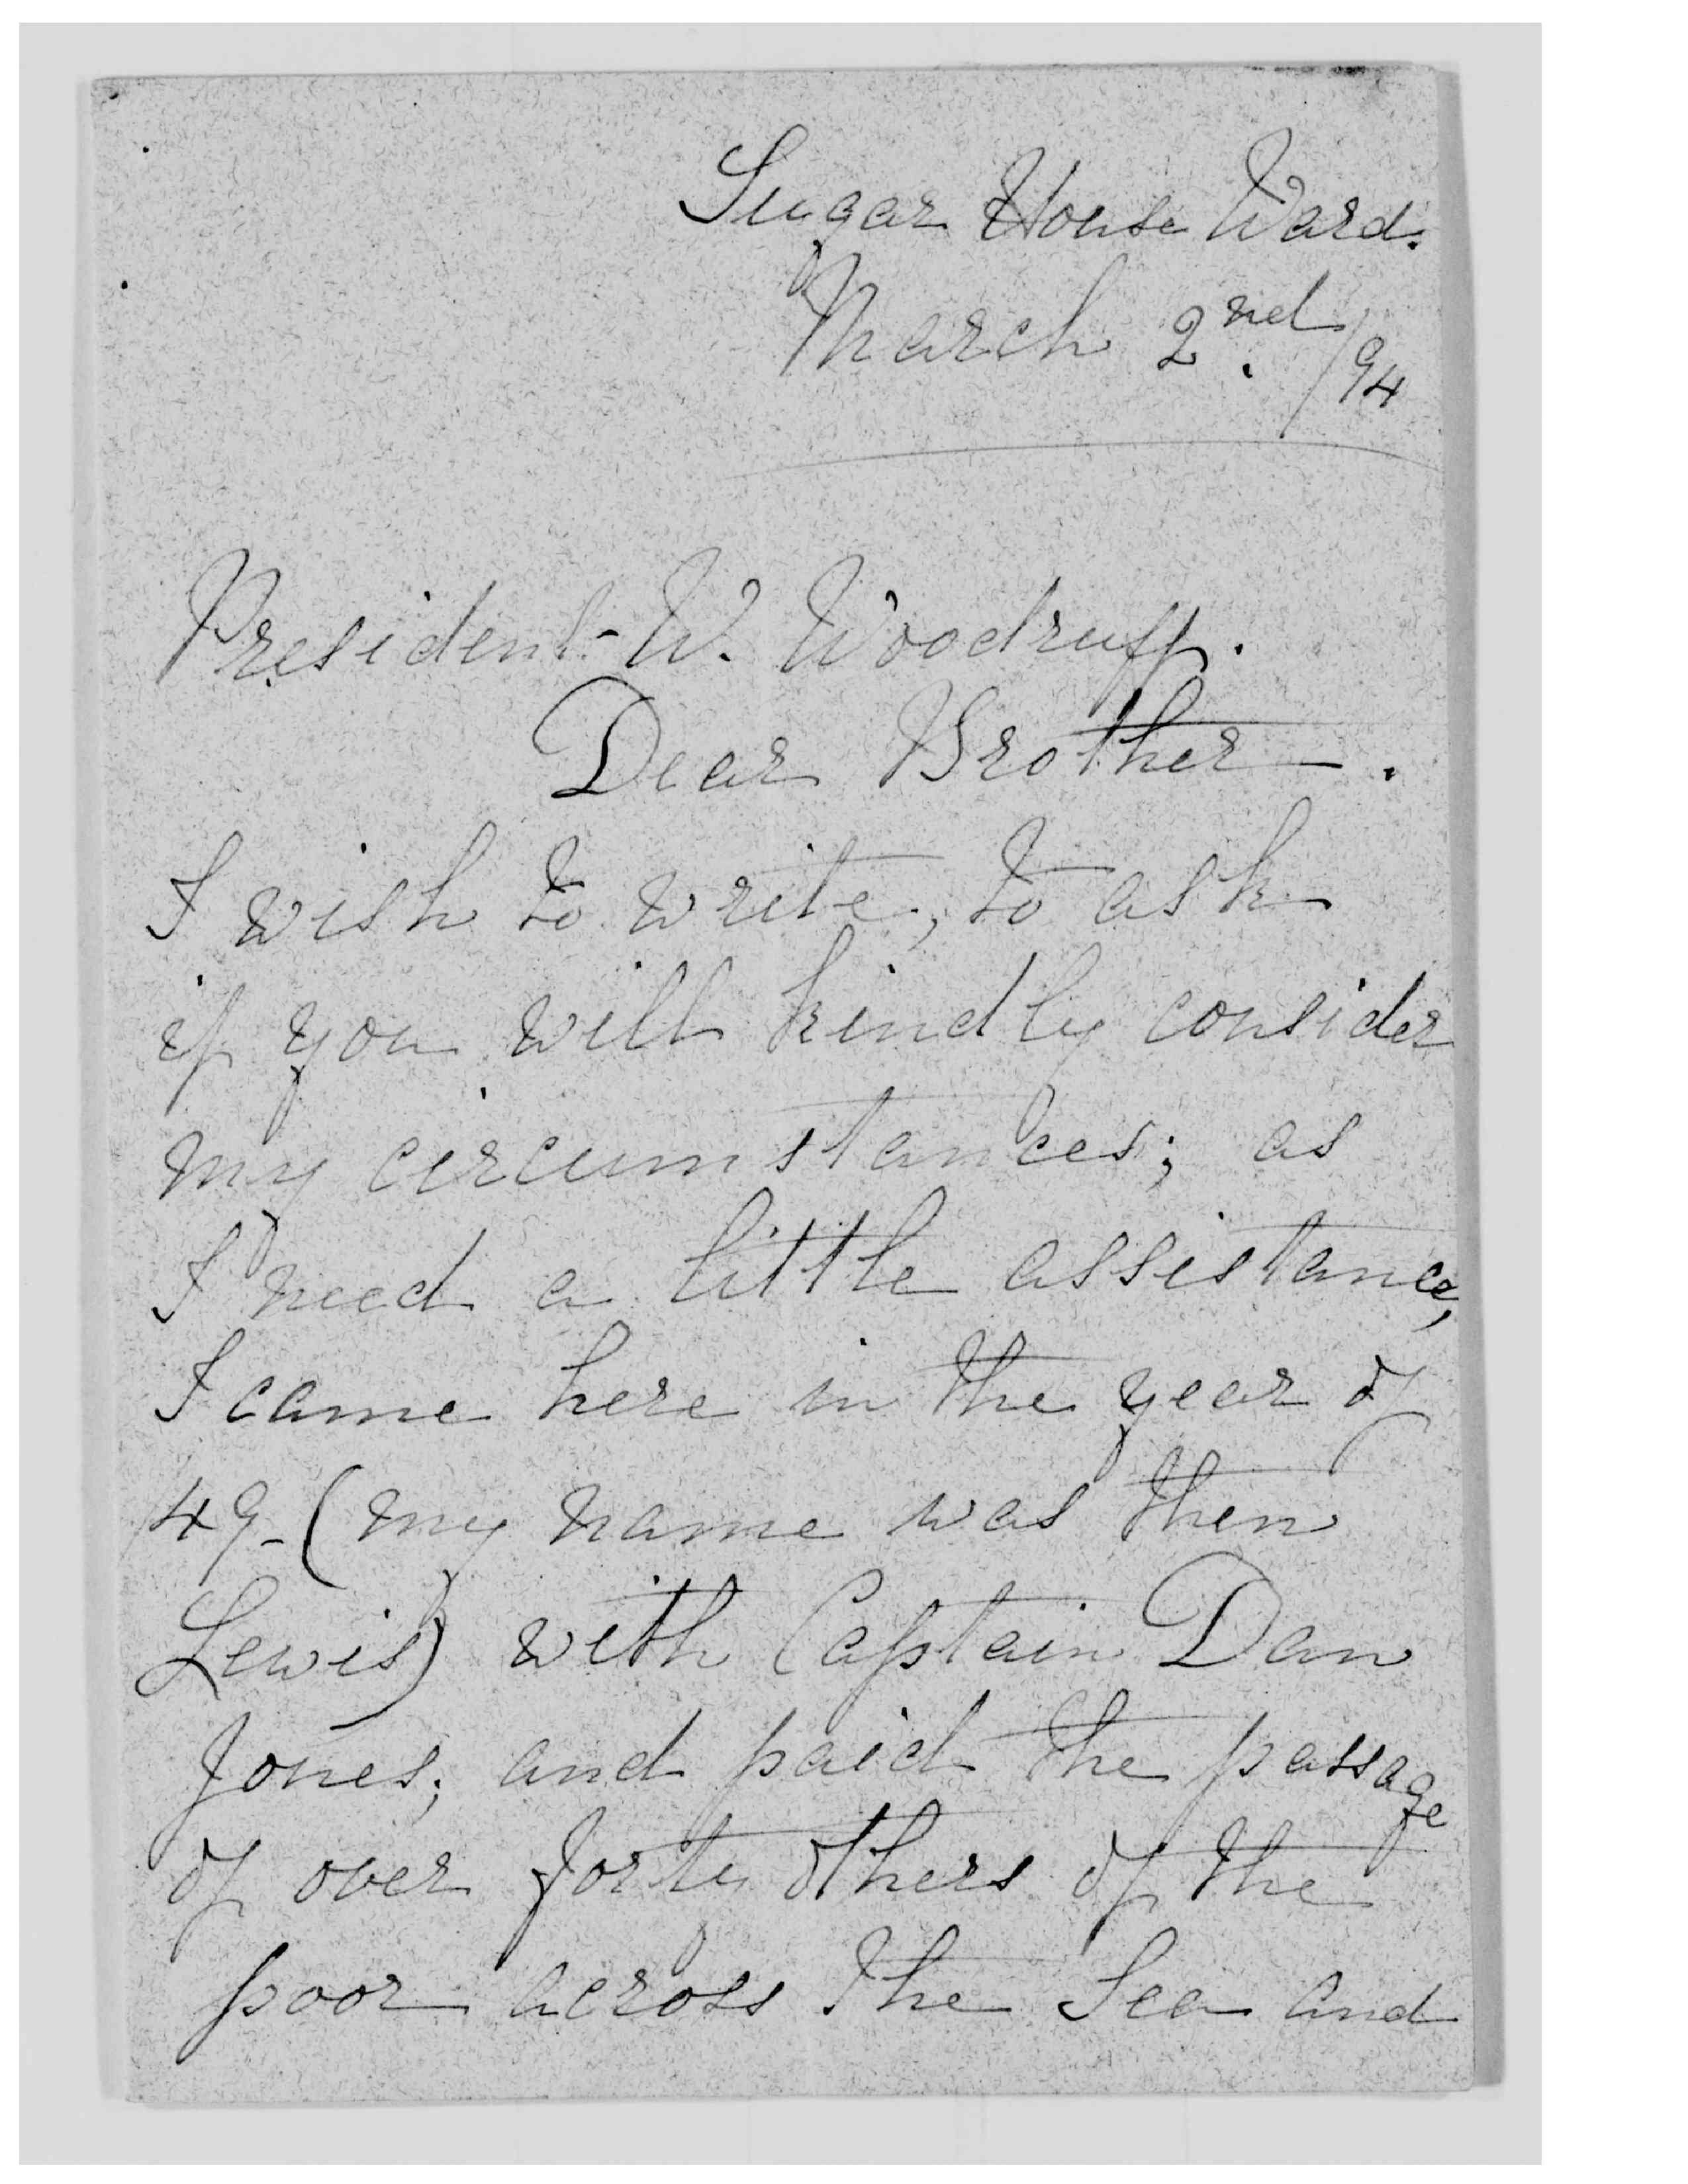 Sugar House Ward.
March 2nd. /94
President W. Woodruff.
Dear Brother.
I wish to write, to ask
if you will kindly consider
my circumstances; as
I need a little assistance,
I came here in the year of
49- (my name was then
Lewis) with Captain Dan
Jones; and paid the passage
of over forty others of the
poor across the Sea and